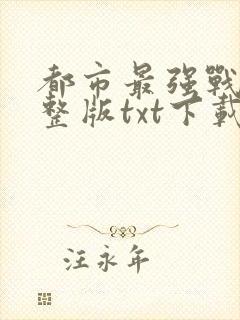 都市最强戰
整版txt下載
汪永年